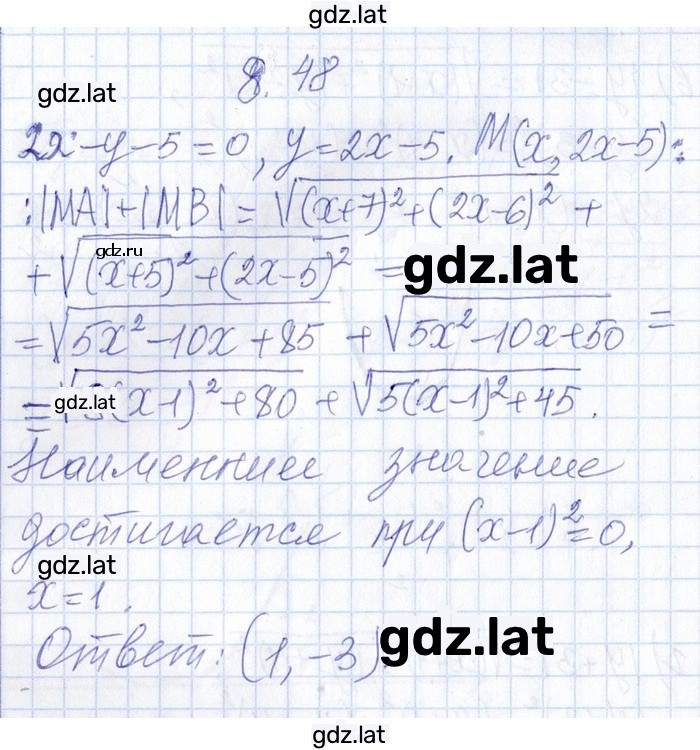 gdz.lat
8.48
gdz.lat
2x-y-5=0, y=2x-5. M(x, 2x-5):
:|MA|+|MB|=√((x+7)²+(2x-6)²) +
gdz.ru
+√((x+5)²+(2x-5)²) =
gdz.lat
=√(5x²-10x+85) +√(5x²-10x+50) =
= (x-1)²+80 +√(5(x-1)²+45).
gdz.lat
Наименьшее значение
достигается при (x-1)²=0,
gdz.lat
x=1.
Ответ: (1,-3)
gdz.lat
gdz.lat